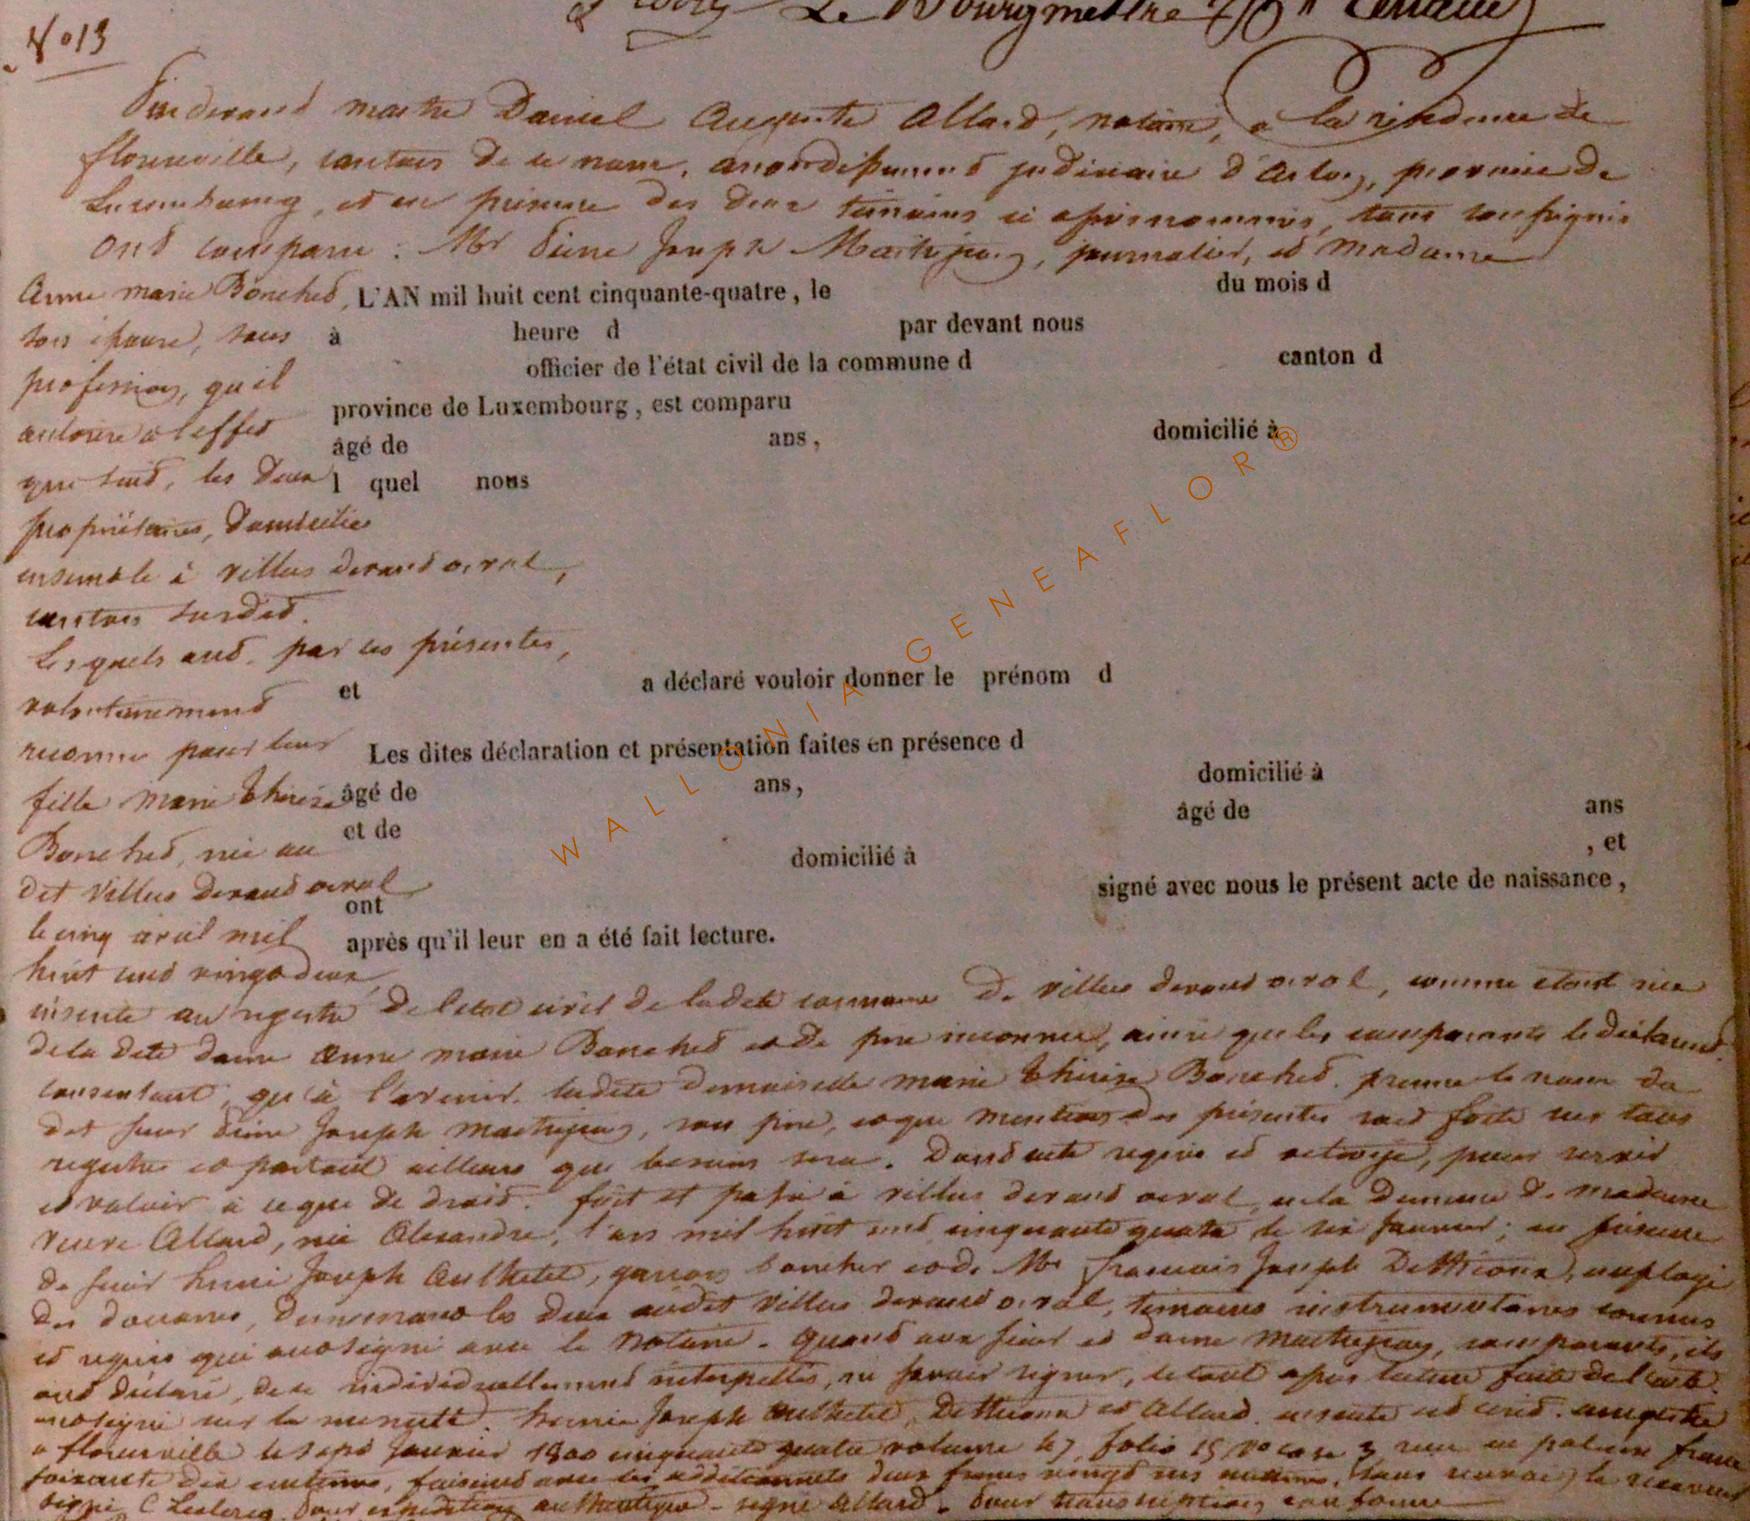 Le Bourgmestre
N° 13
Pardevant maitre Daniel Auguste Allard, notaire, a la residence de
florenville, canton de ce nom, arrondissement judiciaire d'Arlon, province de
Luxembourg, et en presence des deux temoins ci apres nommés, tous soussignés
Ont comparu : Mr Pierre Joseph journalier, et Madame
Anne marie Bonched, L'AN mil huit cent cinquante-quatre, le du mois d
son épouse, sans à heure d par devant nous
profession, qu'il officier de l'état civil de la commune d canton d
autorise a l'effet province de Luxembourg, est comparu
que suit, les deux âgé de ans, domicilié à
l quel nous
propriétaires, domiciliés
ensemble à villers devant orval,
canton susdit.
Lesquels ont, par ces présentes,
volontairement et a déclaré vouloir donner le prénom d
reconnu pour leur Les dites déclaration et présentation faites en présence d
fille Marie thérèse âgé de ans, domicilié à
Bonched, née au et de âgé de ans
dit Villers devant orval domicilié à , et
ont signé avec nous le présent acte de naissance,
le cinq avril mil après qu'il leur en a été fait lecture.
huit cent vingt deux,
inscrite au registre de l'état civil de ladite commune de villers devant orval, comme étant née
de la dite dame Anne marie Bonched et de père inconnu, ainsi que les comparants le déclarent
consentant, qu'à l'avenir, ladite demoiselle marie thérèse Bonched prenne le nom du
dit sieur Pierre Joseph son père, et que mention des présentes soit faite sur tous
registres et partout ailleurs que besoin sera. Dont acte requis et octroyé, pour servir
et valoir à ce que de droit. fait et passé à villers devant orval, en la demeure de madame
veuve Allard, née Alexandre, l'an mil huit cent cinquante quatre le six Janvier; en présence
de sieur henri Joseph garçon boucher et de Mr francois Joseph employé
des douanes, demeurant les deux audit Villers devant orval, témoins instrumentaires connus
et requis qui ont signé avec le Notaire. quant aux sieur et dame comparants, ils
ont déclaré, de ce individuellement interpellés, ne savoir signer, le tout apres lecture faite de l'acte.
ont signé sur la minute. henri Joseph et Allard. enregistré
a florenville le sept Janvier 1800 cinquante quatre volume folio 15 case 3 reçu en principal francs
soixante dix centimes, faisant avec les additionnels deux francs vingt centimes, sans renvoi, le receveur
signé C Leclercq. Pour expédition authentique - signé Allard. Pour transcription conforme
WALLONIA-GENEAFLOR®